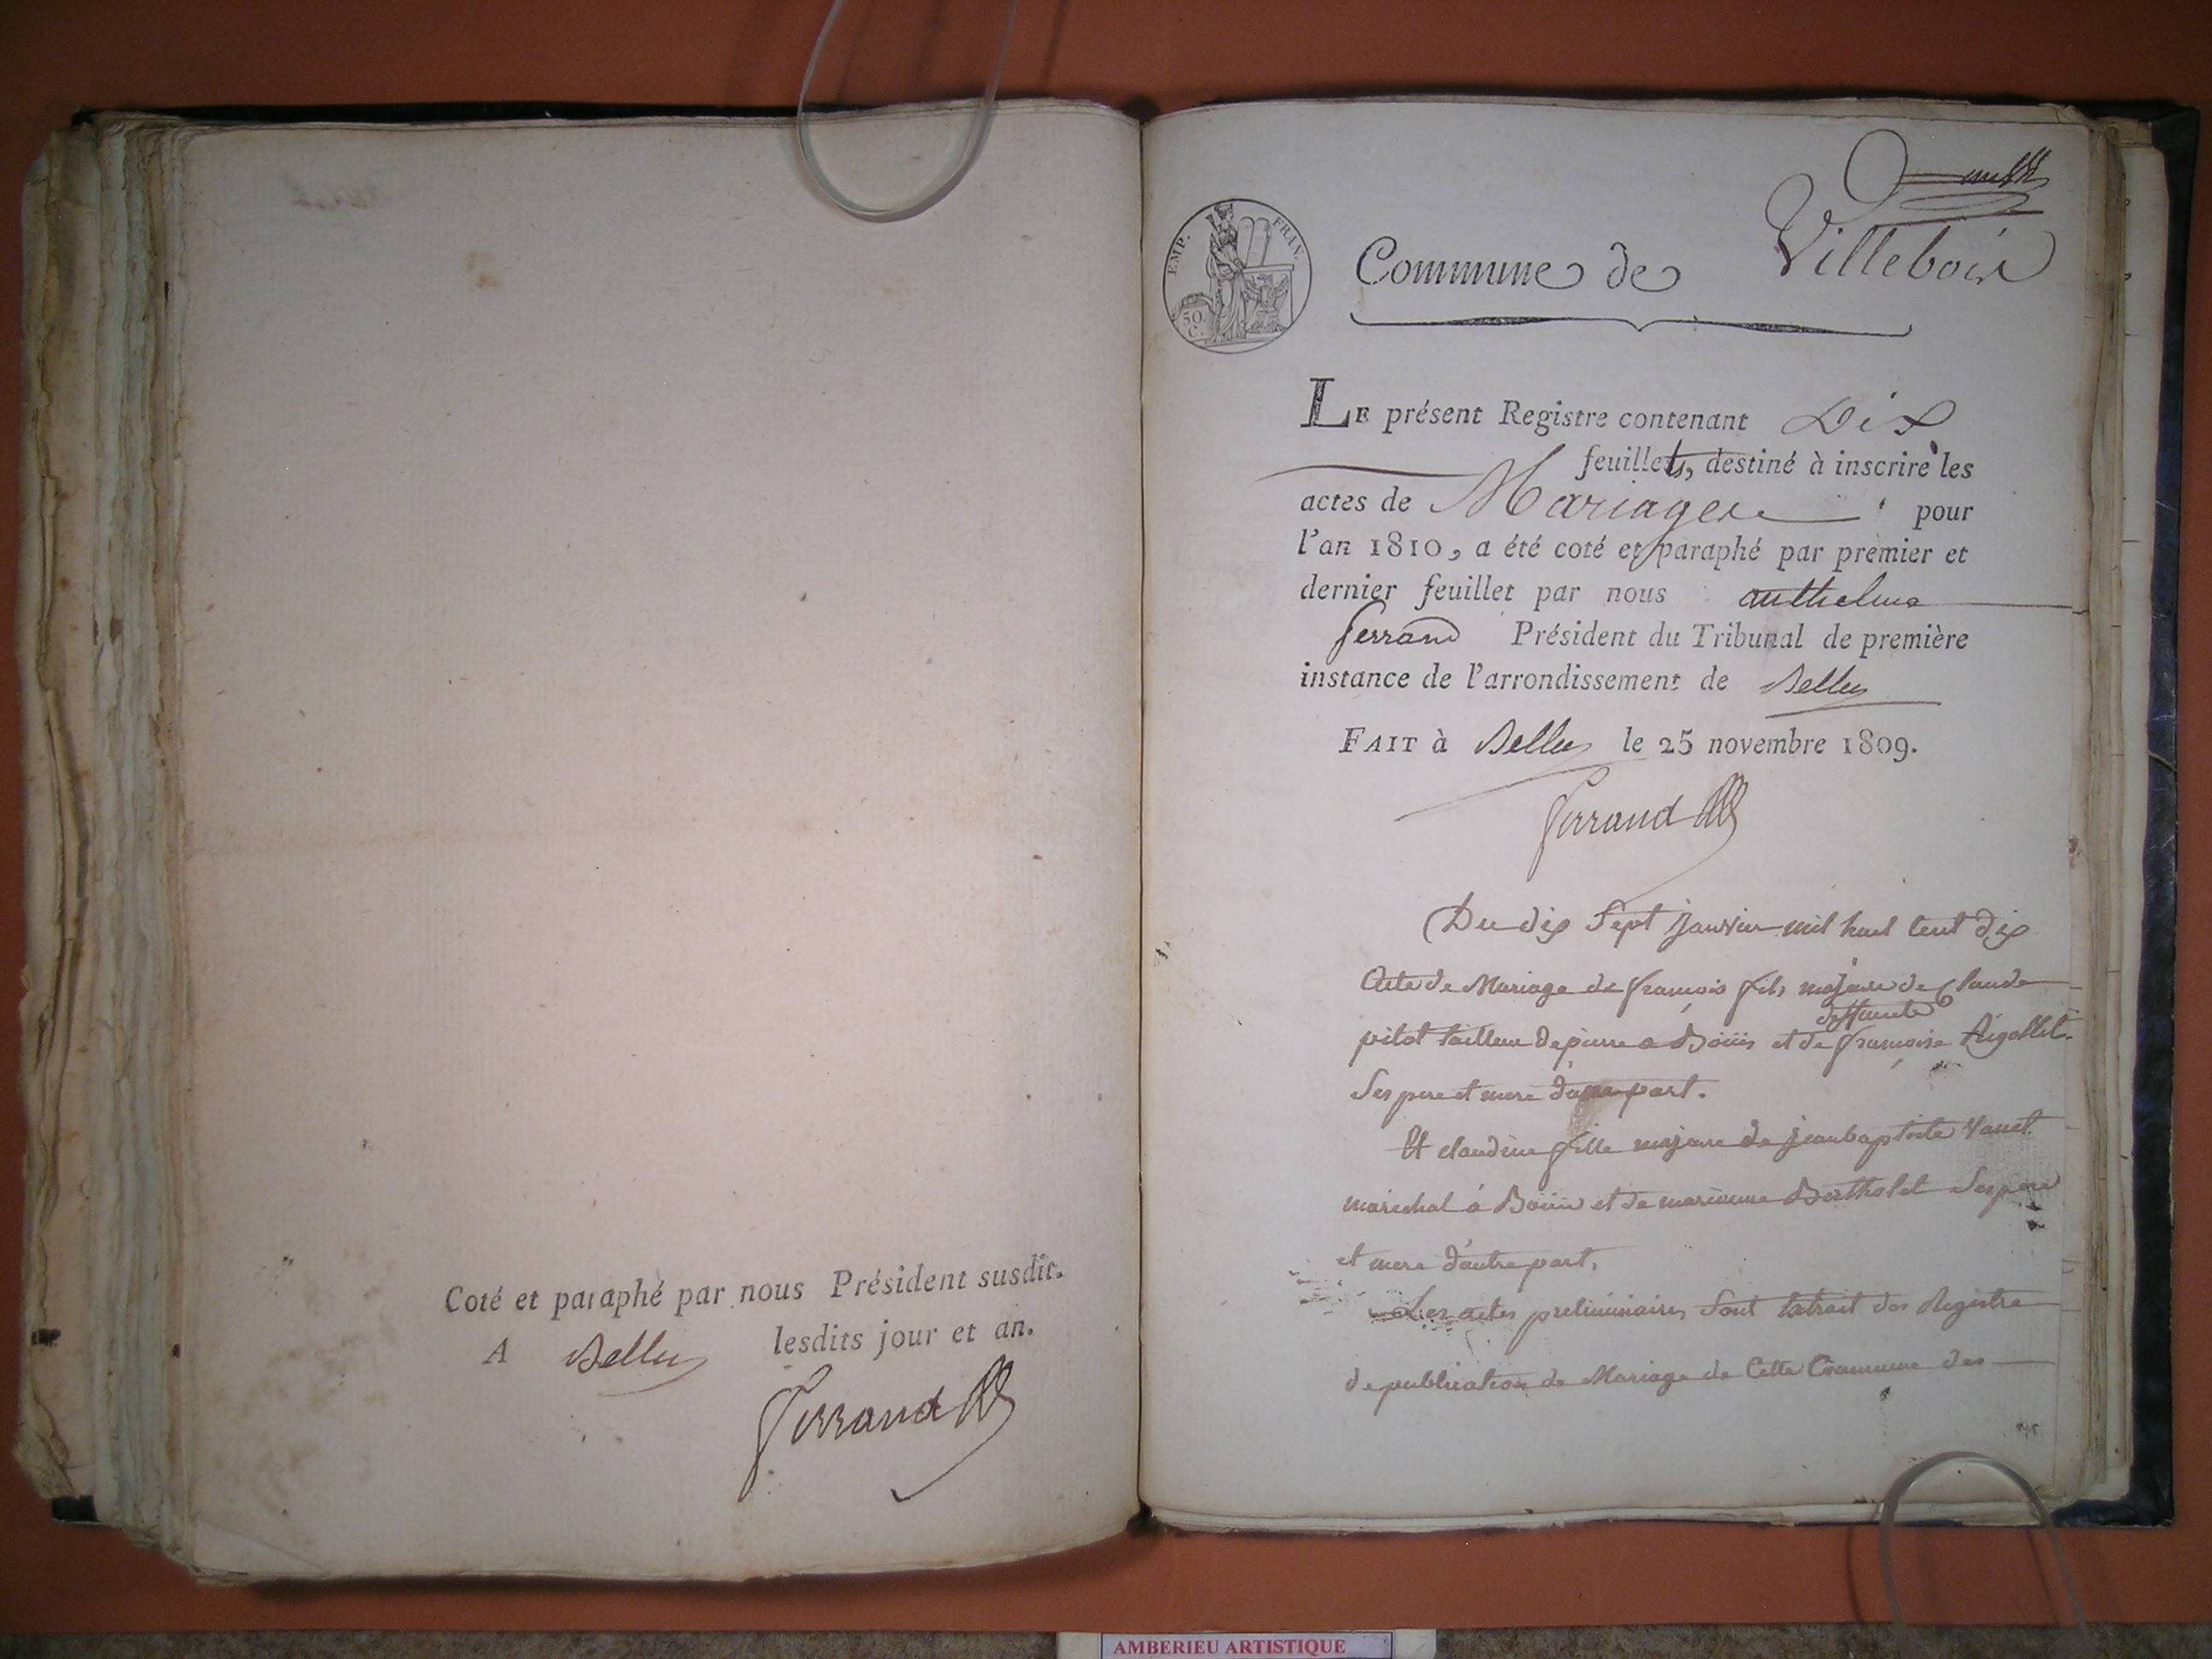 Coté et paraphé par nous Président susdit.
A Belley lesdits jour et an.
Ferrand
EMP. FRAN.
50 C.
Commune de Villebois
LE présent Registre contenant Dix
feuillets, destiné à inscrire les
actes de Mariages pour
l'an 1810, a été coté et paraphé par premier et
dernier feuillet par nous anthelme
ferrand Président du Tribunal de première
instance de l'arrondissement de Belley
FAIT à Belley le 25 novembre 1809.
Ferrand
Du dix Sept janvier mil huit Cent dix
Acte de Mariage de françois fils majeur de Claude
deffunte
pitot tailleur de pierre a Boüis et de françoise Rigollet
Ses pere et mere d'une part.
Et claudine fille majeure de jean baptiste
marechal à Boüis et de marianne Bertholet Ses pere
et mere d'autre part,
Les actes preliminaires Sont Extrait des Registre
de publication de Mariage de Cette Commune des
AMBERIEU ARTISTIQUE